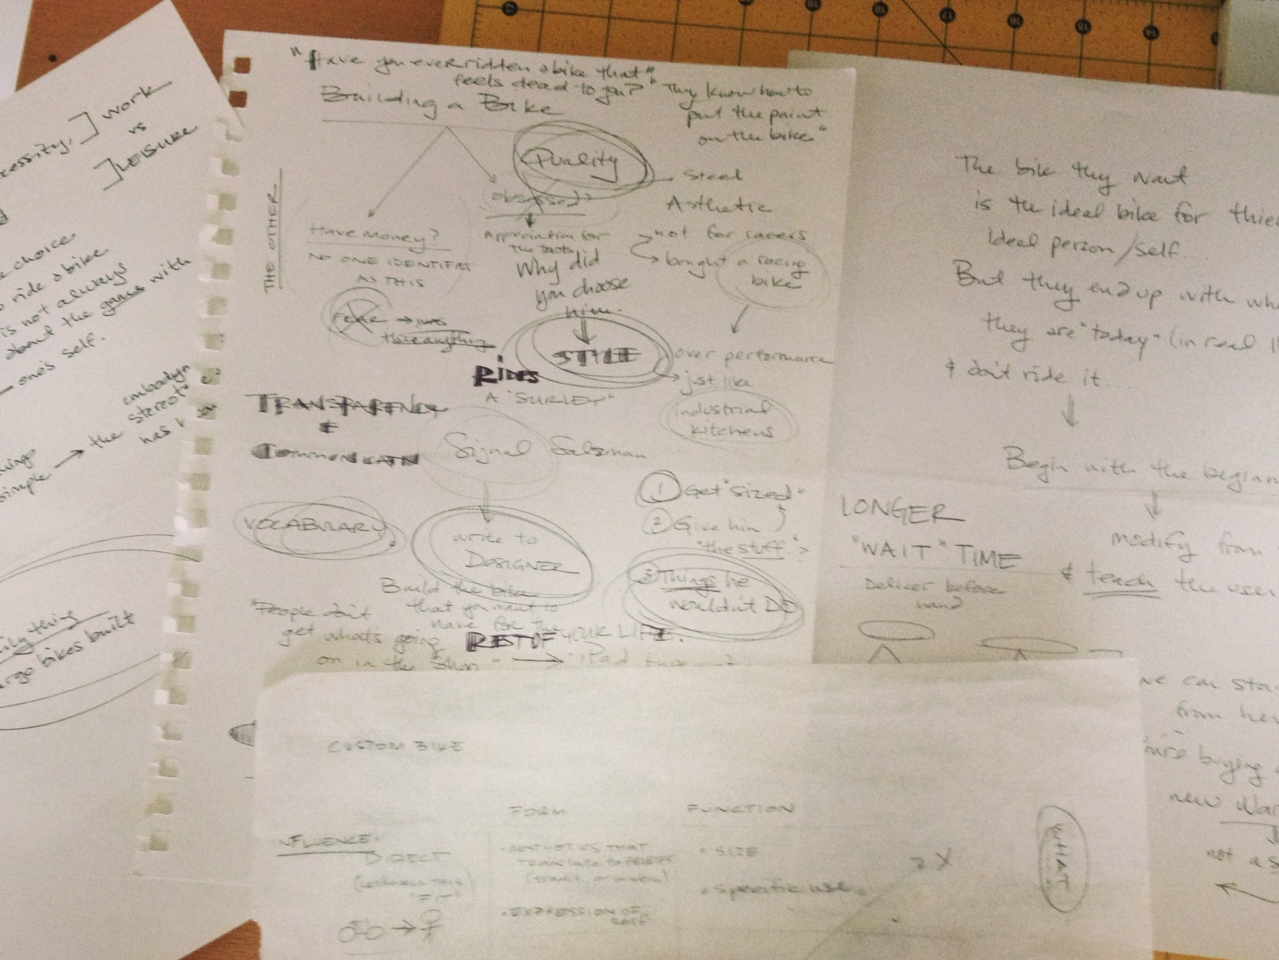 work
is
LEISURE
choice
ride a bike
is not always
about the games with
one's self.
simple → the stereot
has
bikes built
"Have you ever ridden a bike that
feels dead to you?"
Building a Bike
"They know how to
put the paint
on the bike"
Quality
THE OTHER
obsessed?
Steel
Asthetic
Have money?
NO ONE IDENTIFIES
AS THIS
Appreciation for
the tools
Why did
you choose
him.
not for racers
bought a racing
bike
Fear → was
there anything
STYLE
RIDES
A "SURLEY"
over performance
just like
industrial
kitchens
TRANSPARENCY
&
COMMUNICATN
Signal Salzman
① Get "sized"
② Give him
"the stuff"
③ Things he
wouldn't DO
VOCABULARY
write to
DESIGNER
Build the bike
that you want to
have for the
REST OF YOUR LIFE.
"People don't
get what's going
on in the shop"
The bik they want
is the ideal bike for thier
Ideal person/self...
But they end up with wh
they are "today" (in real l
& don't ride it...
Begin with the beginn
modify from
& teach the user
LONGER
"WAIT" TIME
Deliver before
hand
we can sta
from her
buying
new
not a s
CUSTOM BIKE
FORM
FUNCTION
NFLUENCE:
DIRECT
"FIT"
• SIZE
• specific use
• EXPRESSION OF
SELF
X
WHAT